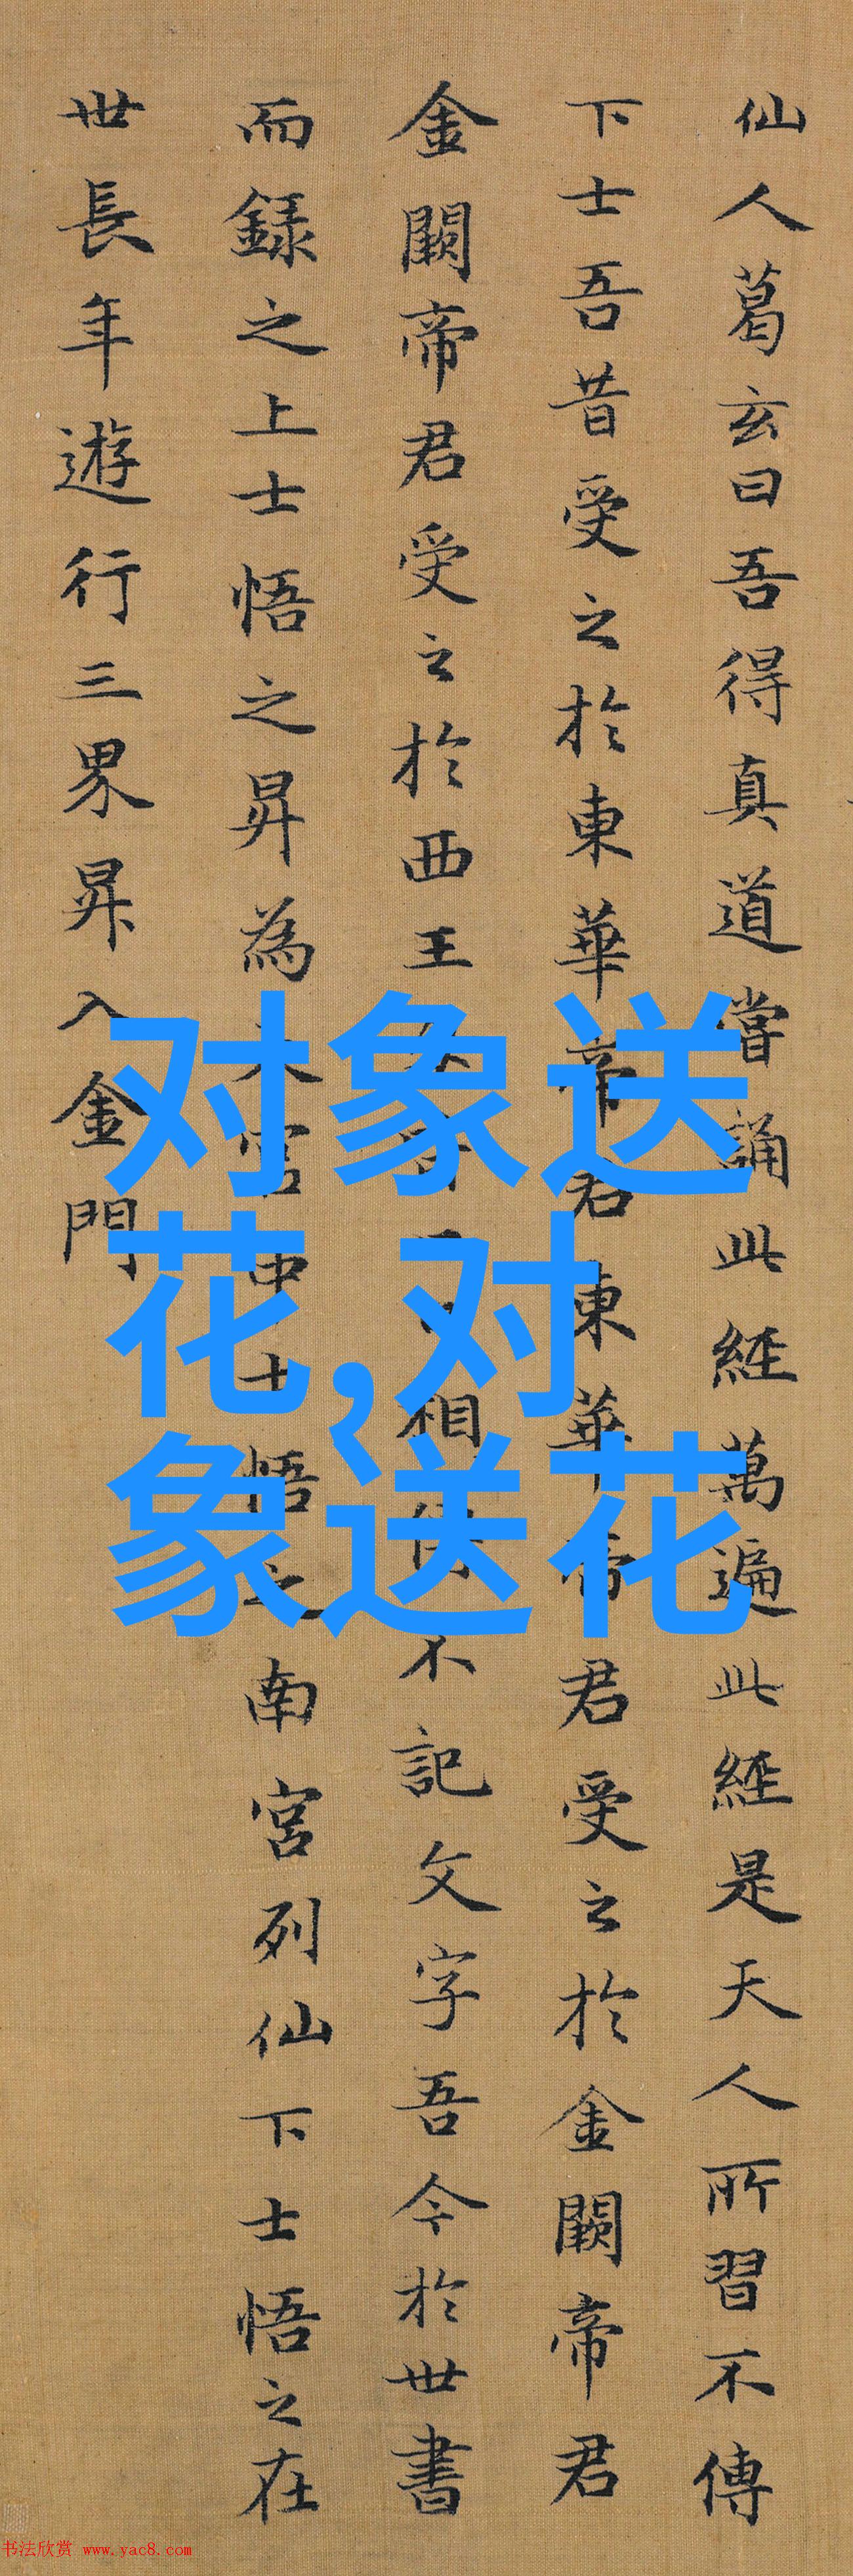 仙人葛玄曰吾得真道嘗誦此經萬遍此經是天人所習不傳
下士吾昔受之於東華帝君東華帝君受之於金闕帝君
金闕帝君受之於西王相不記文字吾今於世書
而録之上士悟之昇為宮中士悟之南宮列仙下士悟之在
世長年遊行三界昇入金門
对象送
花,对
象送花
书法欣赏 www.yac8.com